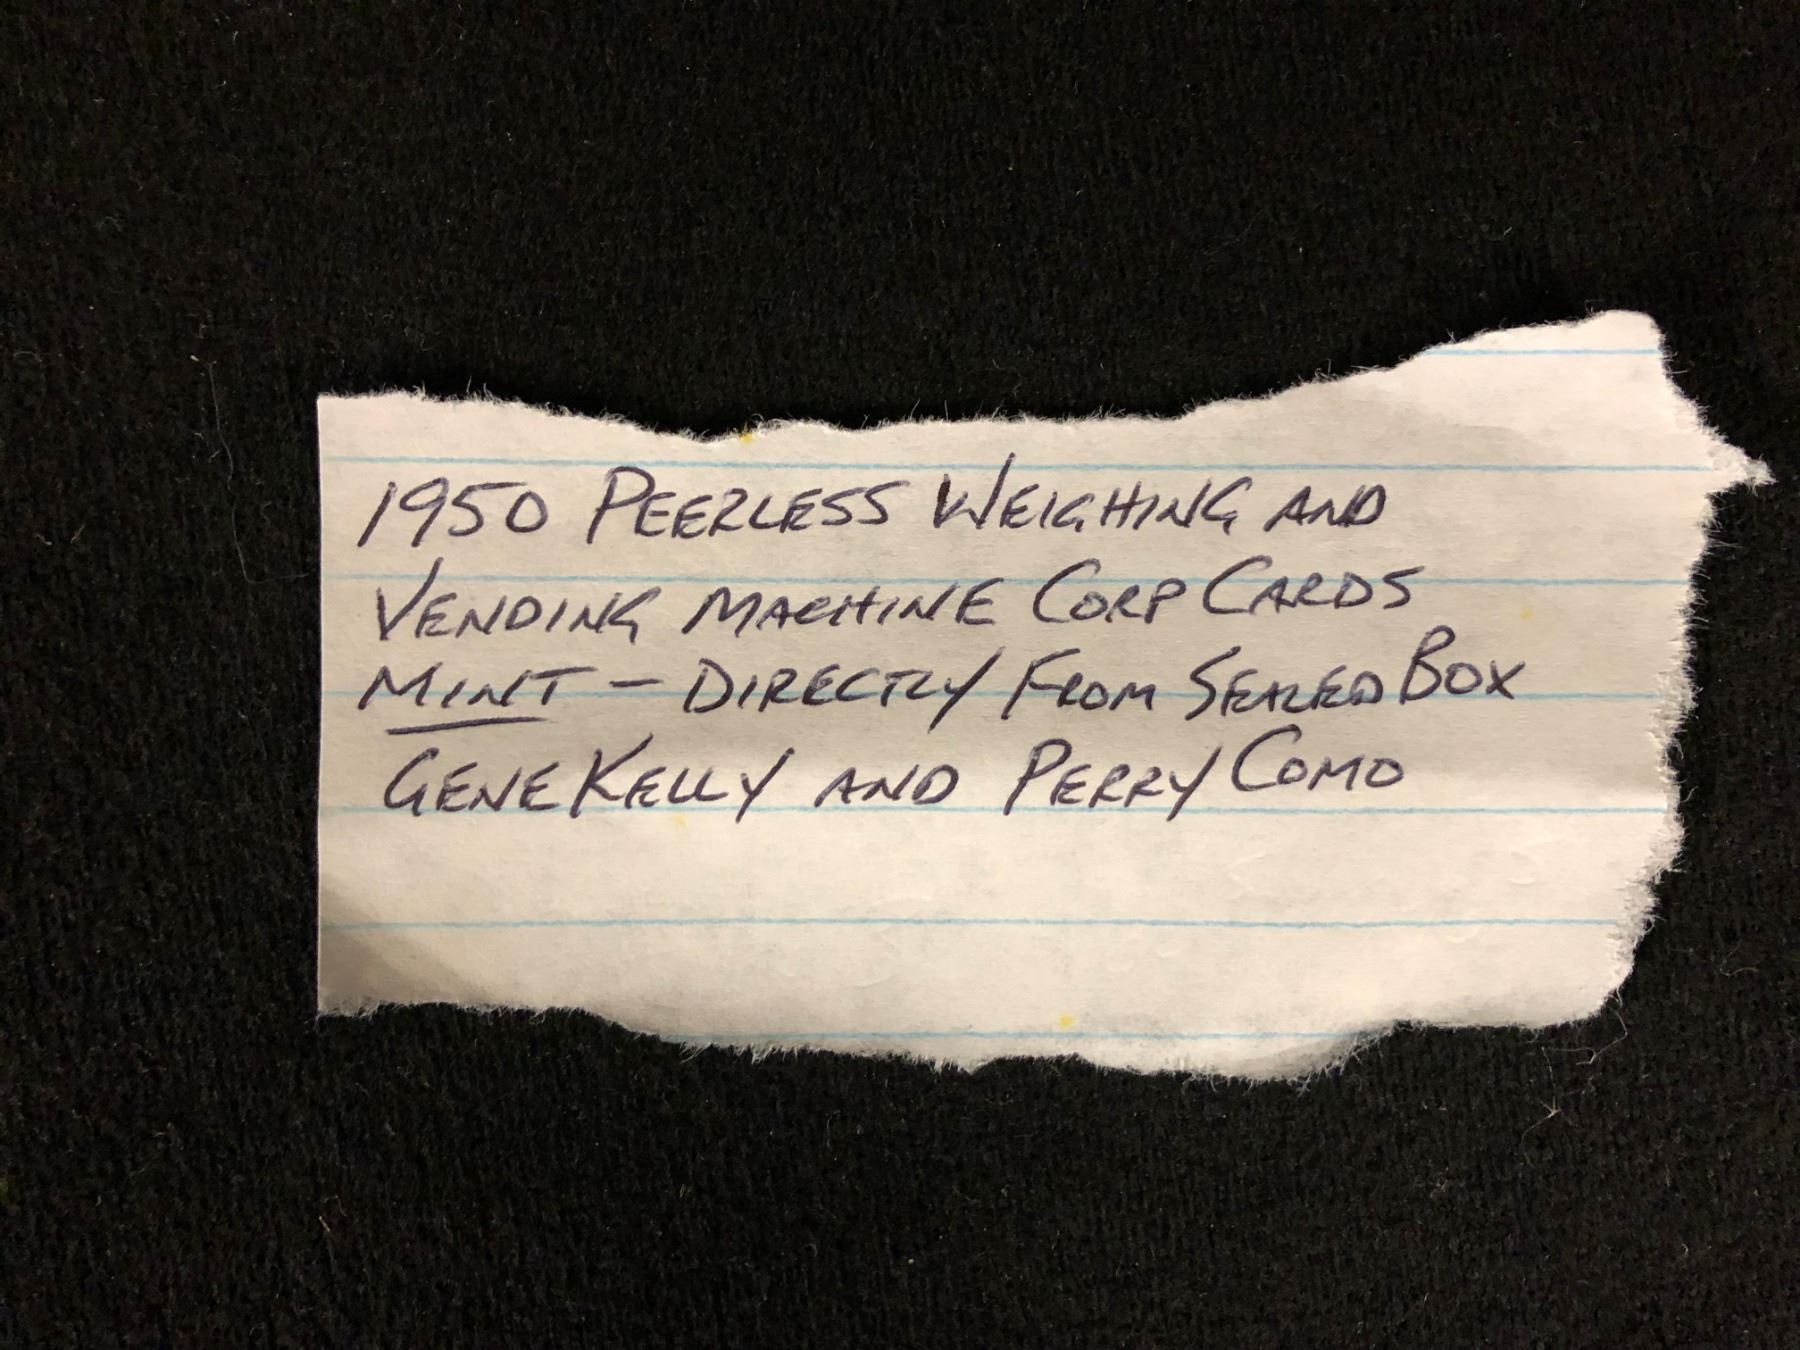 1950 PEERLESS WEIGHING AND
VENDING MACHINE CORP CARDS
MINT - DIRECTLY FROM SEALED BOX
GENE KELLY AND PERRY COMO